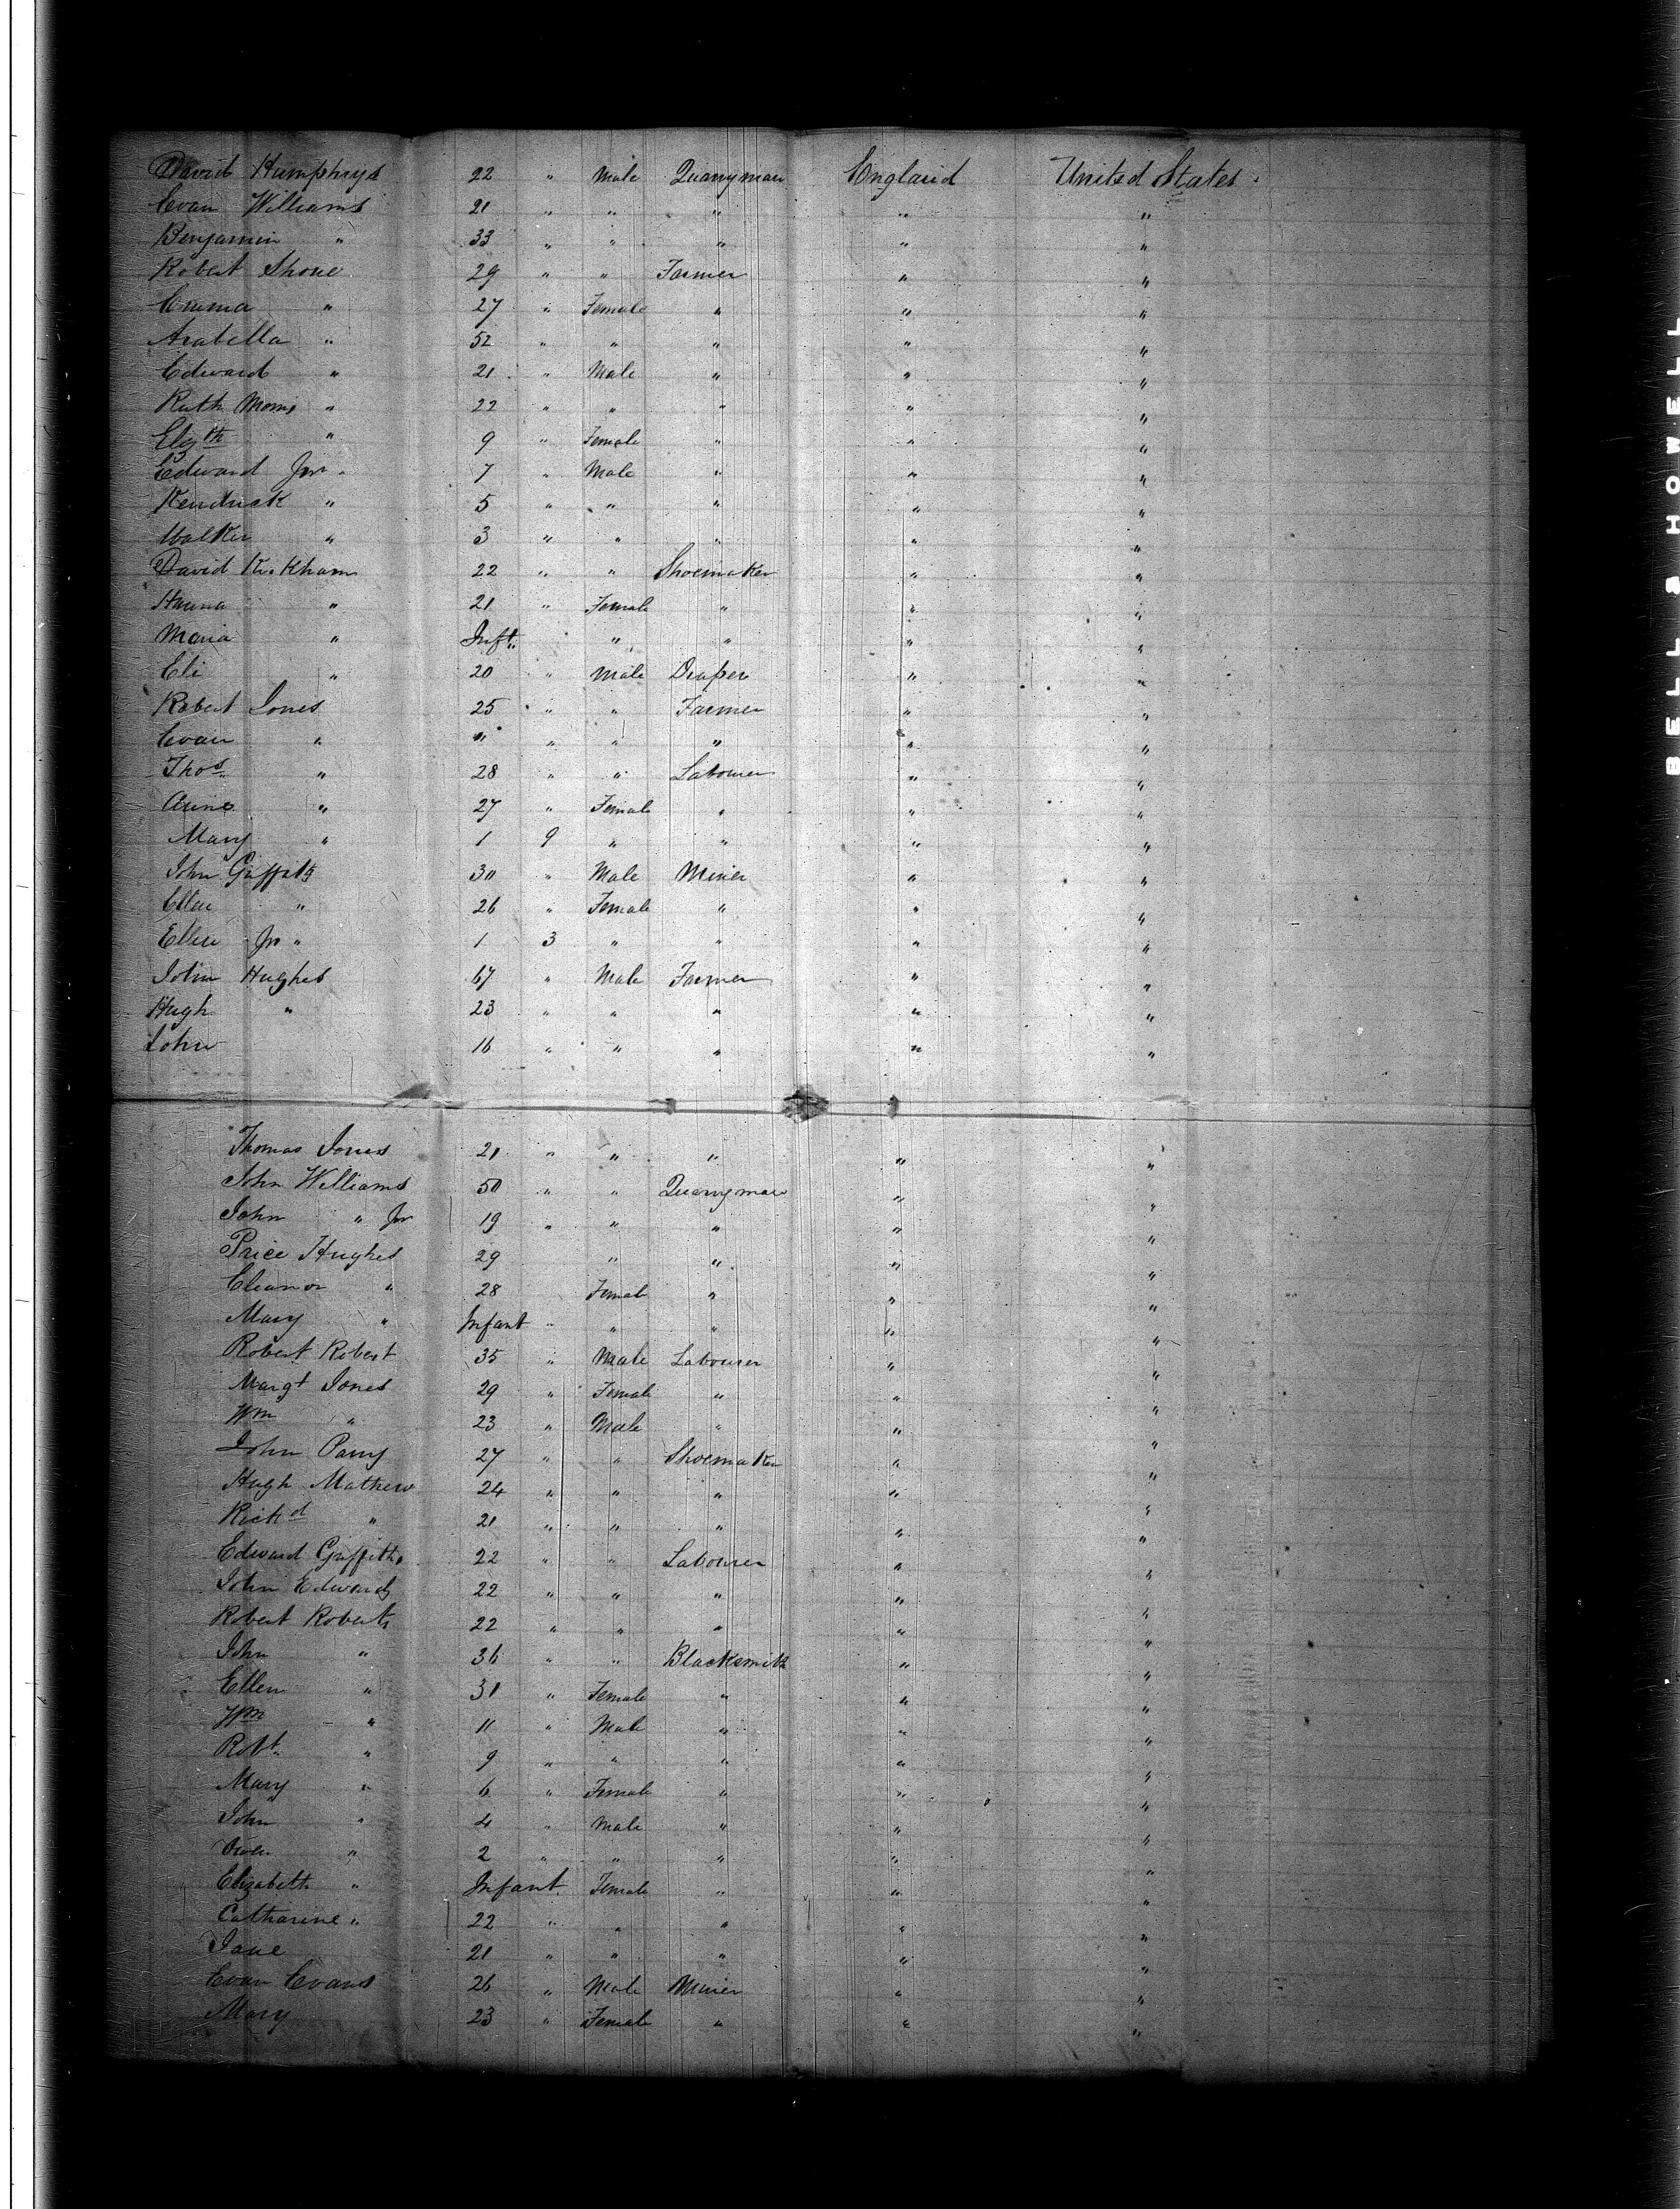 David Humphrys 22 " Male Quarryman England United States.
Evan Williams 21 " " " " "
Benjamin " 33 " " " " "
Robert Shone 29 " " Farmer " "
Emma " 27 " Female " " "
Arabella " 52 " " " " "
Edward " 21 " Male " " "
Ruth Morris " 22 " " " " "
Elizth " 9 " Female " " "
Edward Jnr " 7 " Male " " "
Kendrick " 5 " " " " "
Walker " 3 " " " " "
David Kirkham 22 " " Shoemaker " "
Hanna " 21 " Female " " "
Maria " Inft. " " " "
Eli " 20 " Male Draper " "
Robert Jones 25 " " Farmer " "
Evan " " " " " " "
Thos " 28 " " Labourer " "
Anne " 27 " Female " " "
Mary " 1 9 " " " "
John Griffith 30 " Male Miner " "
Ellen " 26 " Female " " "
Ellen Jr " 1 3 " " " "
John Hughes 67 " Male Farmer " "
Hugh " 23 " " " " "
John 16 " " " " "
Thomas Jones 21 " " " " "
John Williams 50 " " Quarryman " "
John " Jr 19 " " " " "
Price Hughes 29 " " " "
Eleanor " 28 Female " " "
Mary " Infant " " " " "
Robert Robert 35 " Male Labourer " "
Margt Jones 29 " Female " " "
Wm " 23 " Male " " "
John Parry 27 " " Shoemaker " "
Hugh Mathew 24 " " " " "
Richd " 21 " " " " "
Edward Griffiths 22 " " Labourer " "
John Edwards 22 " " " " "
Robert Roberts 22 " " " " "
John " 36 " " Blacksmith " "
Ellen " 31 " Female " " "
Wm " 11 " Male " " "
Robt. " 9 " " " " "
Mary " 6 " Female " " "
John " 4 " Male " " "
Owen " 2 " " " " "
Elizabeth " Infant Female " " "
Catharine " 22 " " " " "
Jane 21 " " " " "
Evan Evans 26 " Male Miner " "
Mary 23 " Female " " "
BELL & HOWELL